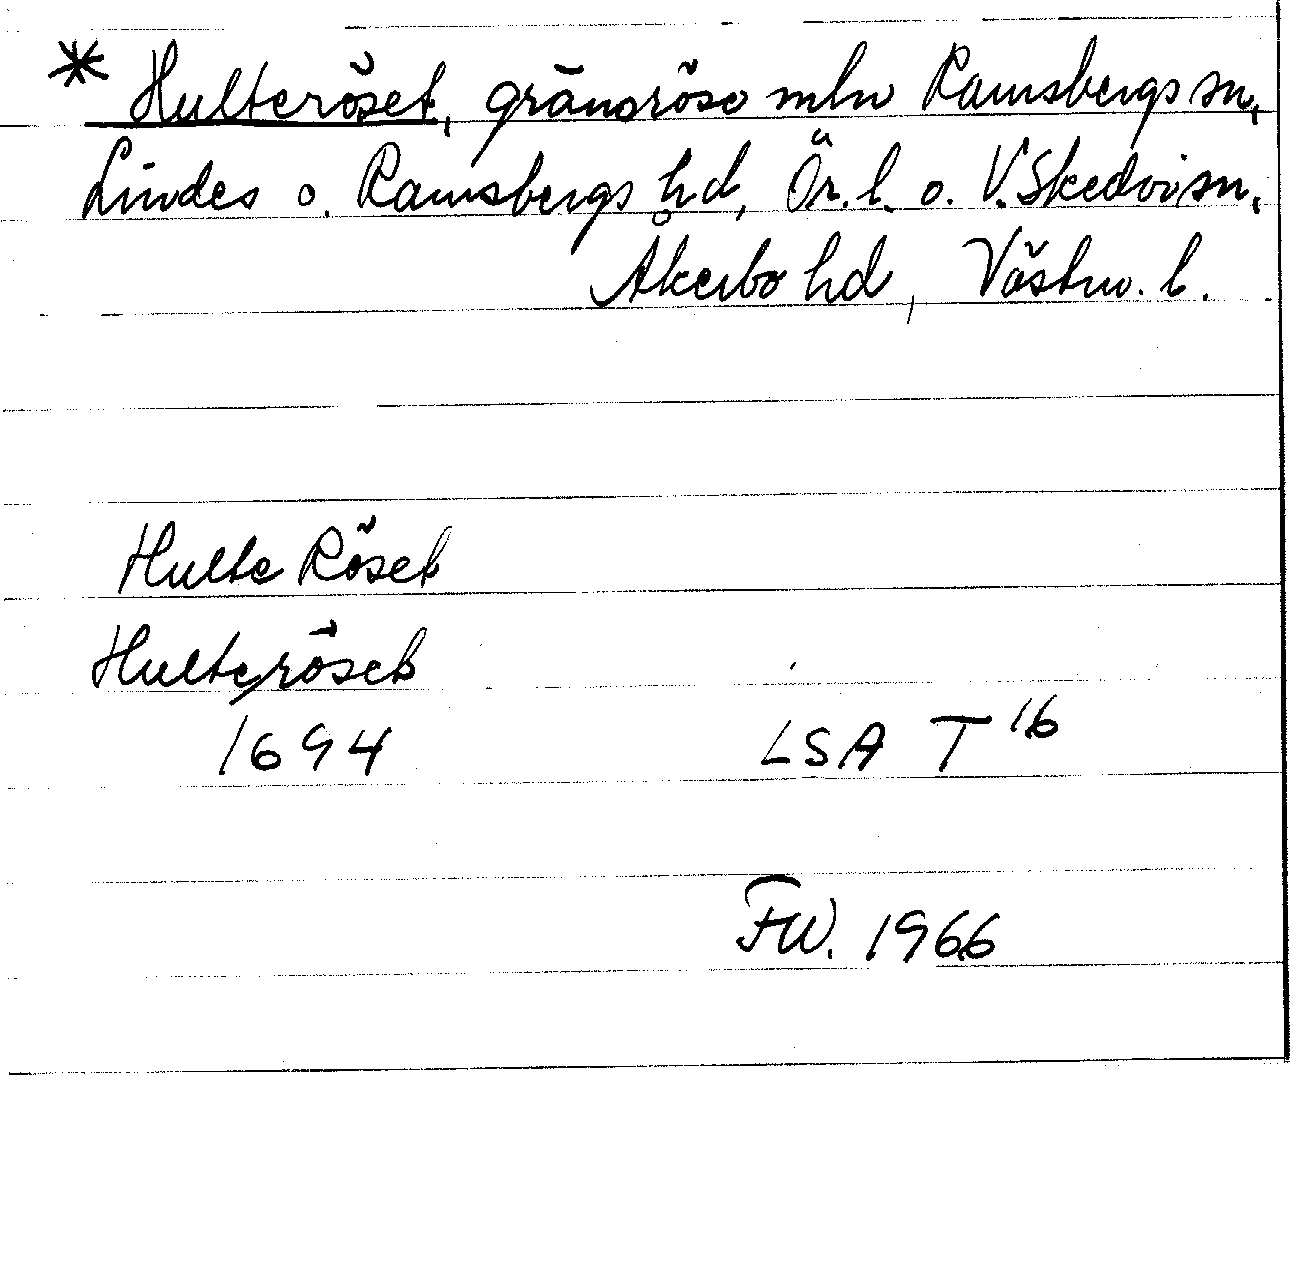 * Hulteröset, gränsröse mln Ramsbergs sn,
Lindes o. Ramsbergs hd, Ör. l. o. V. Skedvi sn,
Åkerbo hd, Västm. l.
Hulte Röset
Hulteröset
1694 LSA T 16
FW. 1966